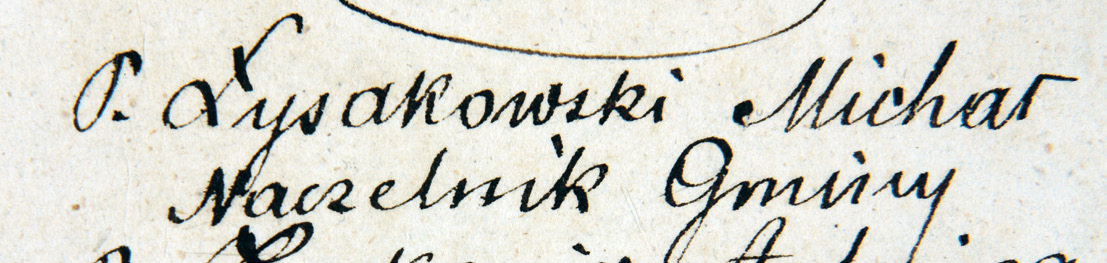 P. Łysakowski Michał
Naczelnik Gminy